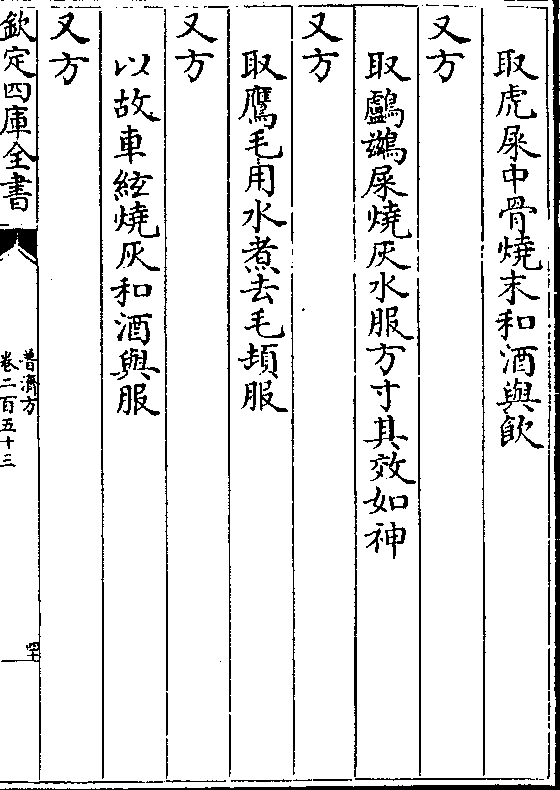 取虎屎中骨燒末和酒與飲
又方
取鸕鷀屎燒灰水服方寸其效如神
又方
取鷹毛用水煮去毛頓服
又方
以故車絃燒灰和酒與服
又方
欽定四庫全書
普濟方
卷二百五十三